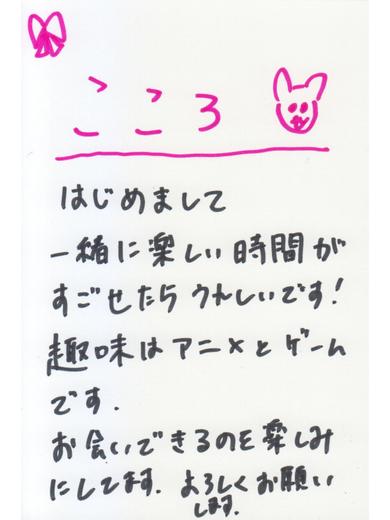 こころ
はじめまして
一緒に楽しい時間が
すごせたら ウれしいです!
趣味はアニメとゲーム
です.
お会いできるのを楽しみ
にしてます. よろしくお願い
します.